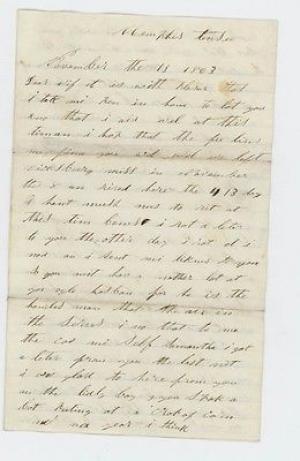 Memphis tenn
November the 18 1863
Dear wif it is with pleser that
i take mi pen in hand to let you
now that i am wel at this
time and i hop that the few lines
ma find you wel and we left
vicksburg miss in November
the and rived here the 13 day
i hant much nus to rit at
this time i rot a leter
to you the other day i rot al i
nod an i sent mi liknes to you
So you wil hav a nother look at
your ugle husban for he is the
man that the air in
the Servis i no that to me
the cos mi Self Samantha i got
a leter from you the last nit
i was glad to here from you
an the litle boy you Spok a
bot puting at a crop of corn
nex year i think